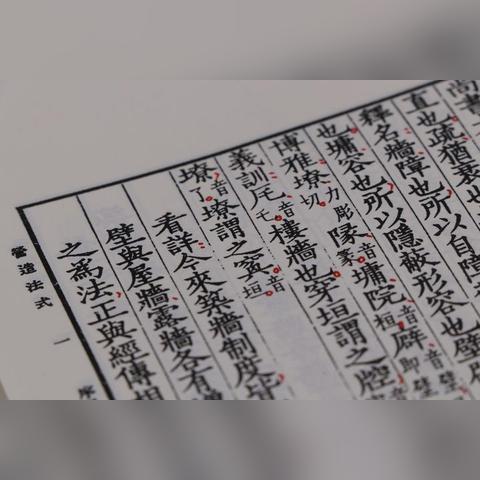 尚書
直也疏猶衰也
釋名牆障也所以自障
也墉容也所以隱蔽形容也壁
博雅㙩力彫切隊音篆墉院音桓廦音壁即壁
義訓庉音乇樓牆也穿垣謂之腔
㙩音了㙩謂之㝠音垣
看詳今來築牆制度皆
壁與屋牆露牆各有
之為法正與經傳相
營造法式
一